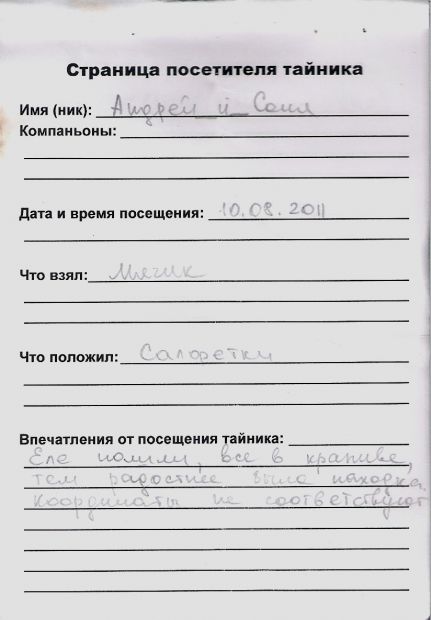 Страница посетителя тайника
Имя (ник): Андрей_и_Соня
Компаньоны:
Дата и время посещения: 10.08.2011
Что взял: Мячик
Что положил: Салфетки
Впечатления от посещения тайника:
Еле нашли, все в крапиве,
тем радостнее была находка.
Координаты не соответствуют